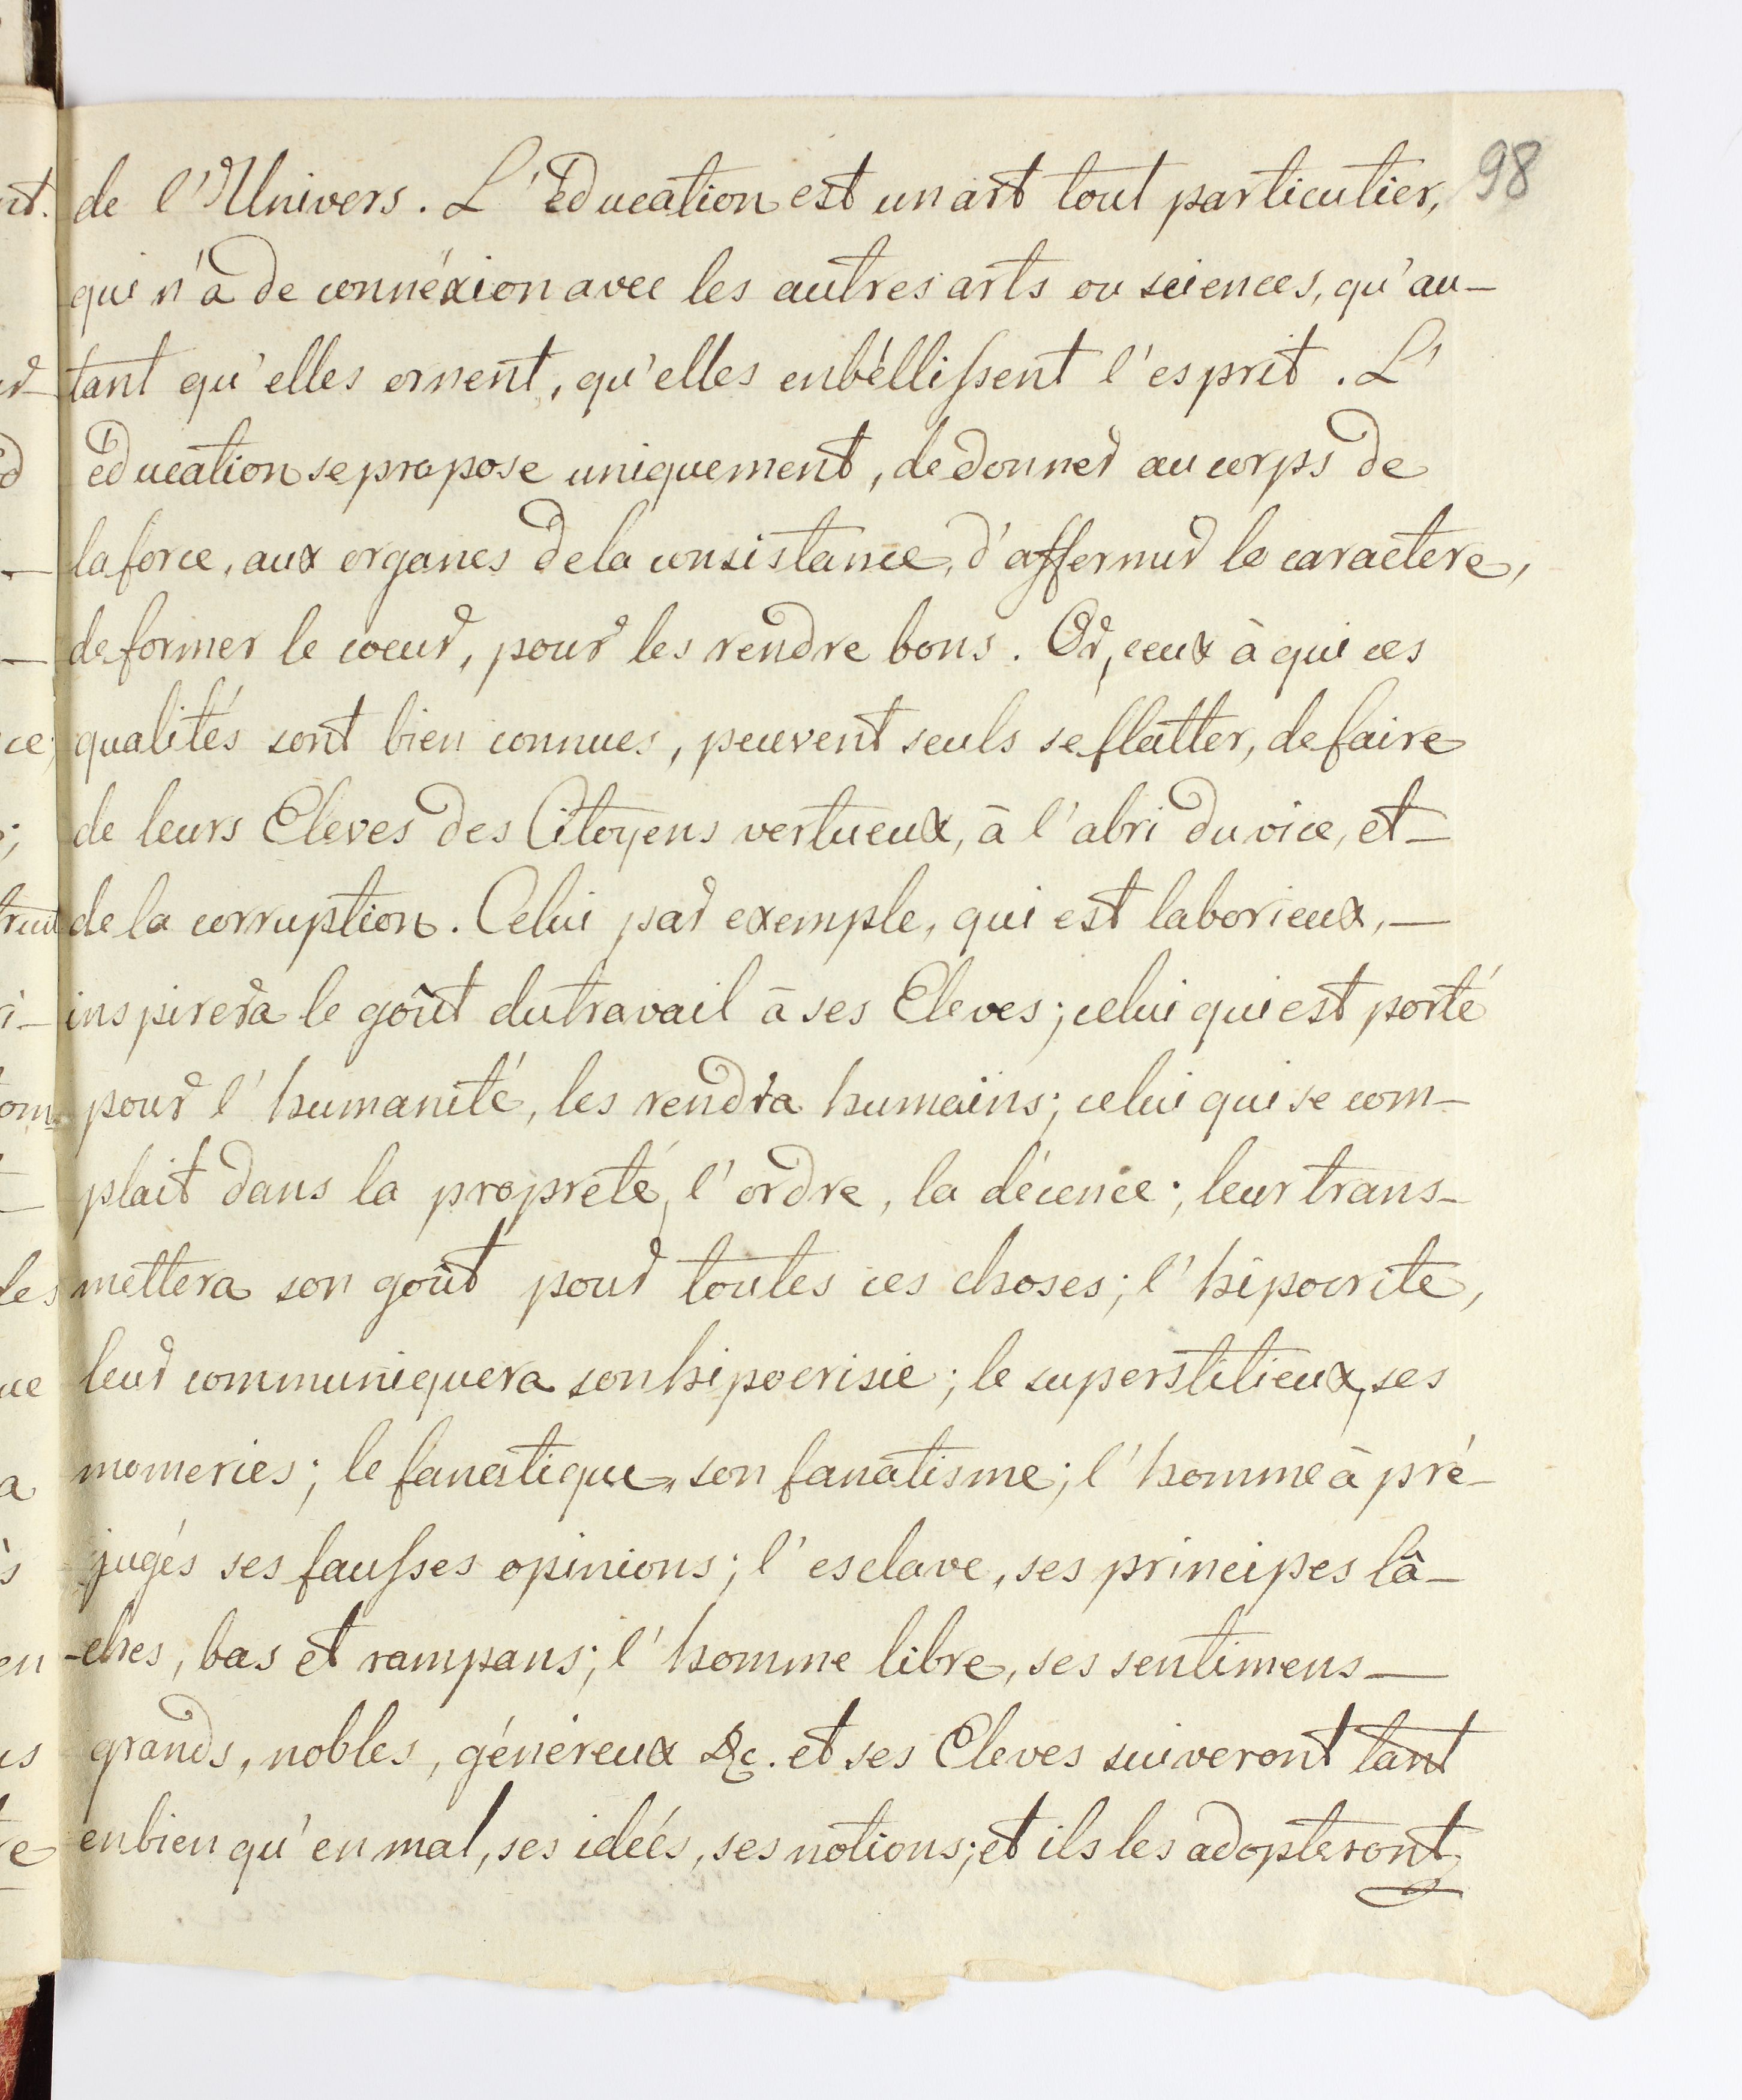 98
de l'Univers. L'Education est un art tout particulier,
qui n'a de connéxion avec les autres arts ou sciences, qu'au-
tant qu'elles ornent, qu'elles enbéllissent l'esprit. L'
éducation se propose uniquement, de donner au corps de
la force, aux organes de la consistance, d'affermir le caractere,
de former le coeur, pour les rendre bons. Or, ceux à qui ces
qualités sont bien connues, peuvent seuls se flatter, de faire
de leurs Eleves des Citoyens vertueux, à l'abri du vice, et -
de la corruption. Celui par exemple, qui est laborieux, -
inspirera le goût du travail à ses Eleves; celui qui est porté
pour l'humanité, les rendra humains; celui qui se com-
plait dans la propreté, l'ordre, la décence; leur trans-
mettera son goût pour toutes ces choses; l'hipocrite,
leur communiquera son hipocrisie; le superstitieux, ses
momeries; le fanatique, son fanatisme; l'homme à pré-
jugés ses fausses opinions; l'esclave, ses principes lâ-
-ches, bas et rampans; l'homme libre, ses sentimens -
grands, nobles, généreux &c. et ses Eleves suiveront tant
en bien qu'en mal, ses idées, ses notions; et ils les adopteront